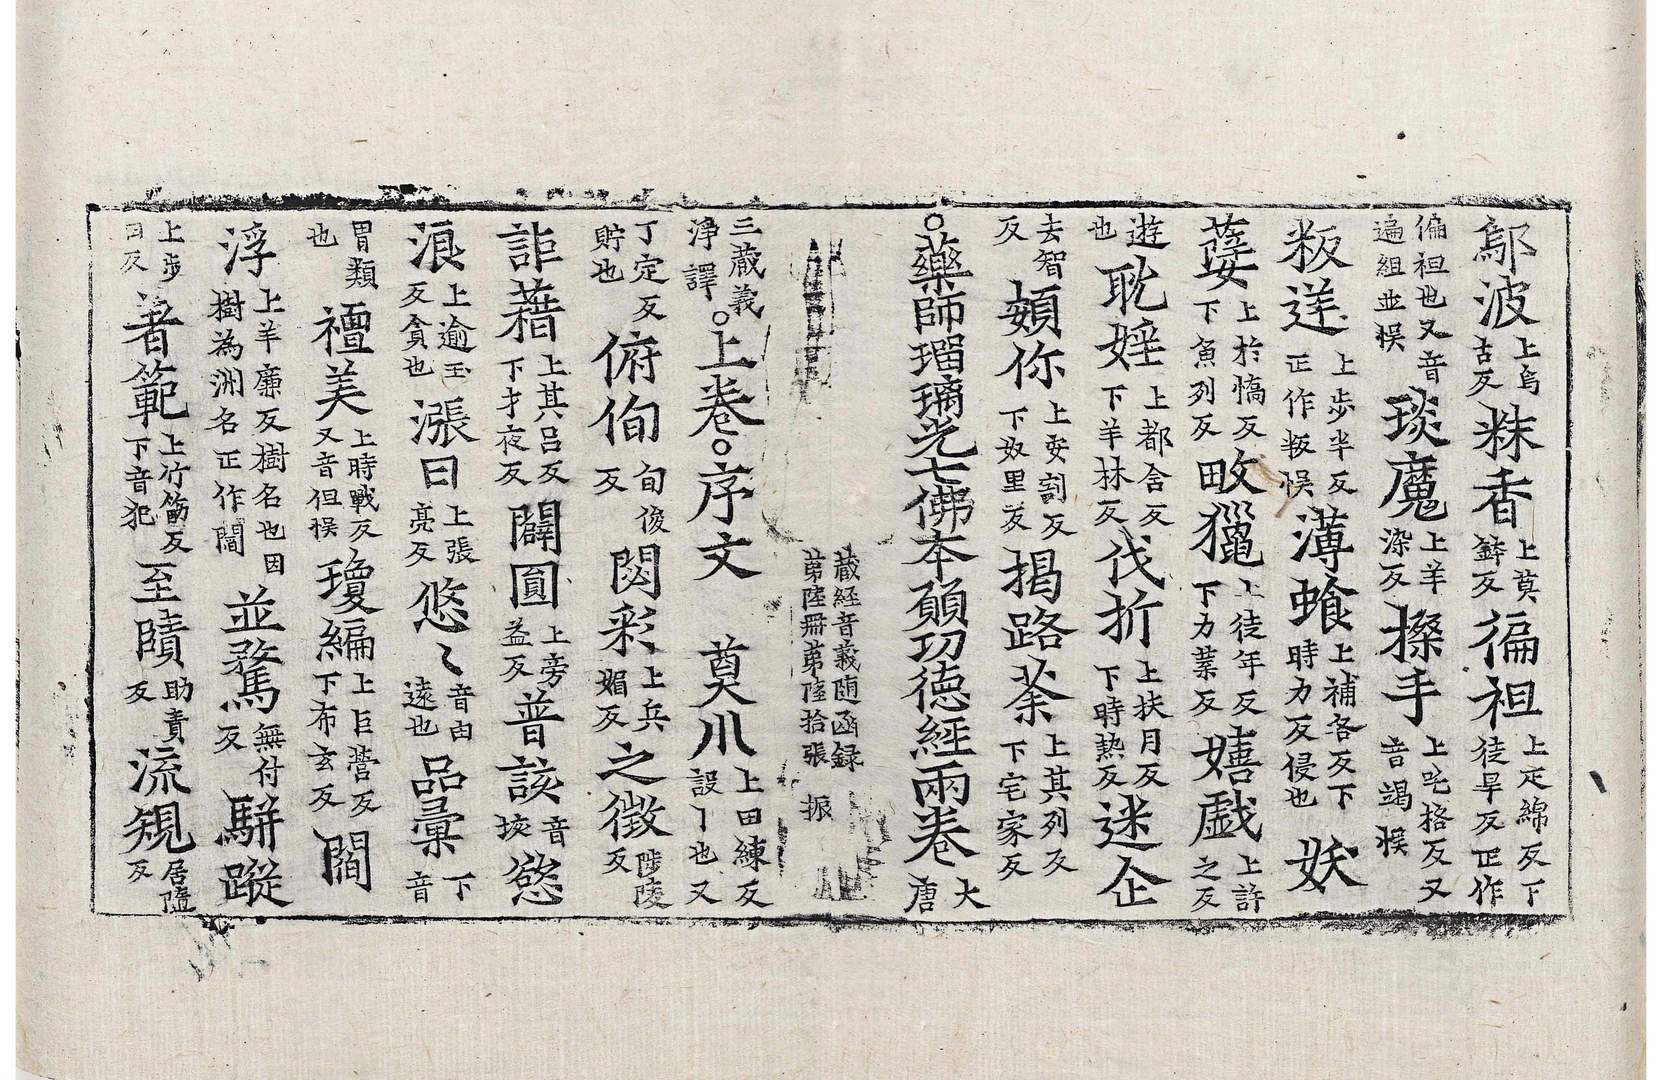 鄔波上烏古反䊳香上莫鉢反徧袒上疋綿反下徒旱反正作
偏袒也又音遍組並悮琰魔上羊染反搩手上吒格反又音竭悮
粄送上步半反正作叛悮薄蝕上補各反下時力反侵也 妖
㜸上於憍反下魚列反畋獵上徒年反下力葉反嬉戲上許之反
遊也耽婬上都含反下羊林反伐折上扶月反下時熱反迷企
去智反頞你上安割反下奴里反揭路荼上其列反下宅家反
○藥師瑠璃光七佛本願功德經兩卷大唐
藏經音義随函録苐陸冊苐陸拾張 振
三藏義淨譯○上卷○序文 奠川上田練反設丨也又
丁定反貯也俯徇旬俊反閟彩上兵媚反之徵陟陵反
詎藉上其呂反下才夜反闢圎上旁益反普該音垓慫
浪上逾玉反貪也漲日上張亮反悠〻音由遠也品彙下音
胃類也襢美上時戰反又音但悮瓊編上巨營反下布玄反閻
浮上羊廉反樹名也因樹為洲名正作閻並騖無付反駢蹤
上步田反著範上竹筯反下音犯至賾助責反流規居隨反